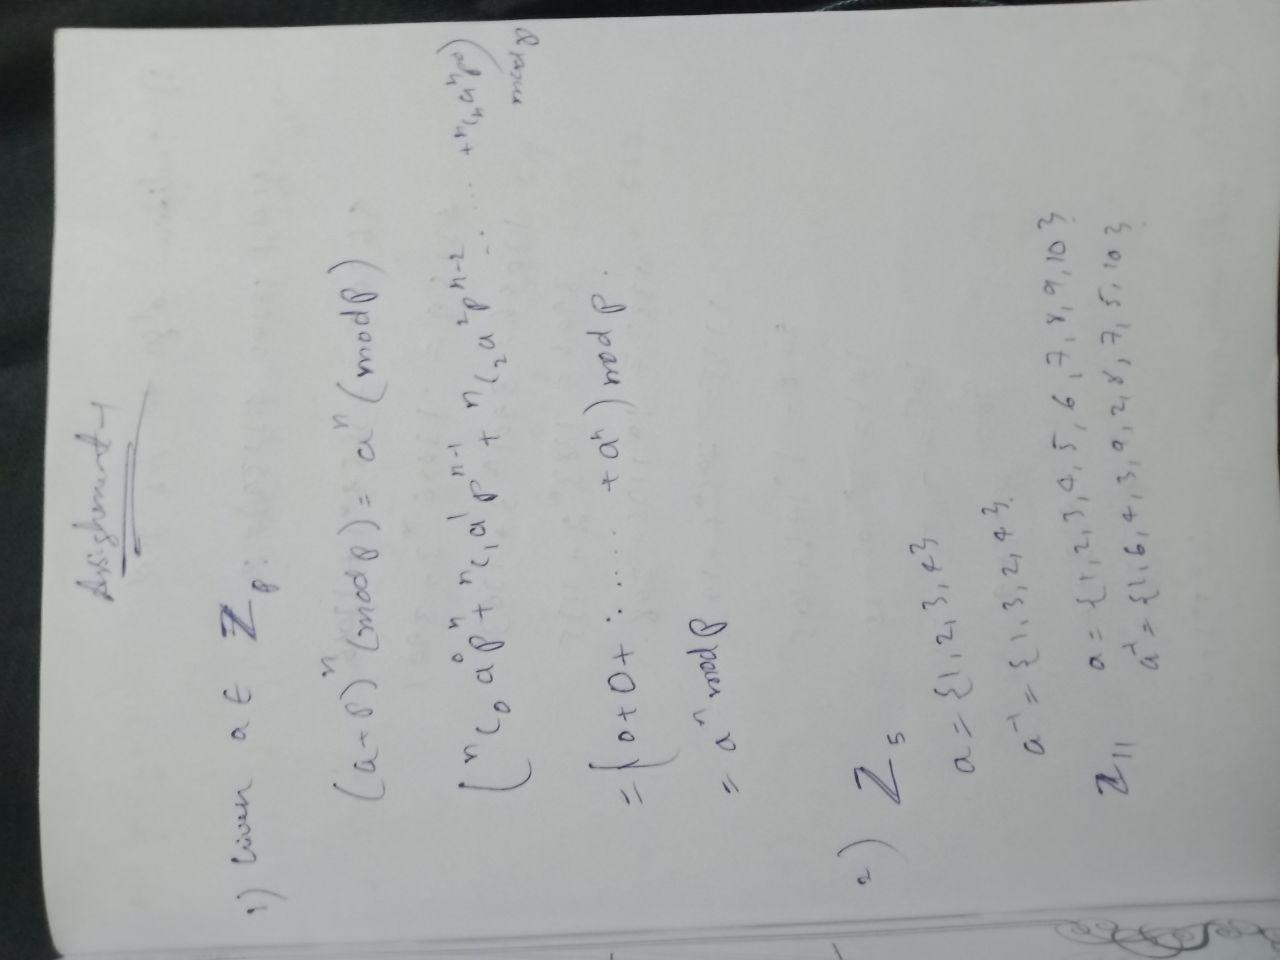 Assignment-1
1) Given a ∈ Zp:
(a+p)ⁿ (mod p) = aⁿ (mod p)
(ⁿC₀ a⁰pⁿ + ⁿC₁a¹pⁿ⁻¹ + ⁿC₂a²pⁿ⁻² ..... + ⁿCₙaⁿp⁰) mod p
= {0+0+ ...... + aⁿ) mod p.
= aⁿ mod p
2) Z₅
a = {1,2,3,4}
a⁻¹ = {1,3,2,4}.
Z₁₁ a = {1,2,3,4,5,6,7,8,9,10}
a⁻¹ = {1,6,4,3,9,2,8,7,5,10}